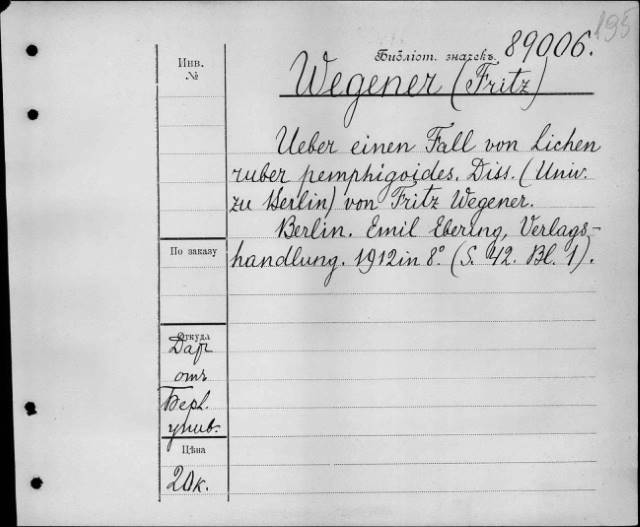 195
Библіот. значекъ. 89006.
Инв.
№
Wegener (Fritz)
Ueber einen Fall von Lichen
ruber pemphigoides. Diss. (Univ.
zu Berlin) von Fritz Wegener.
Berlin. Emil Ebering, Verlags-
handlung. 1912 in 8º. (S. 42. Bl. 1).
По заказу
Откуда
Дар
отъ
Берл.
унив.
Цѣна
20к.